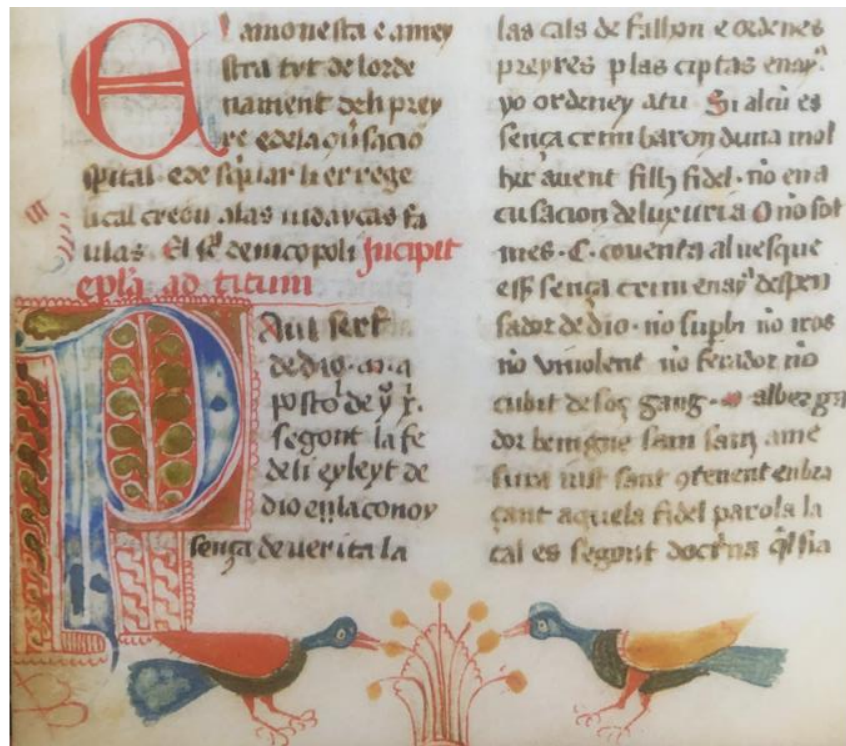 El amonesta e amey
stra tyt de lorde
nament deli prey
re e dela ꝯũsacio
spital · e de sqͥuar li erege
lical creon a las iudaycas fa
ulas. El scͥ de nicopoli Incipit
epl̃a ad titum
Paul serf
de dio · m · a
postõ de y̾ x̾.
segont la fe
de li eyleyt de
dio en la conoy
sença de uerita la
las cals de fallon e ordenes
preyres p las ciptas enay̾
yo ordeney a tu. Si alcũ es
sença crim baron duna mol
her auent filh fidel · nõ en a
cusacion de luxuria O nõ sot
mes · C · coventa al uesque
eſſ sença crim enay̾ despen
sador de dio · nõ suphi nõ iros
nõ vinolent nõ feridor nõ
cubit de soç gang · alberga
dor benigne sani sanç ame
sura iust sant ꝯtenent enbra
çant aquela fidel parola la
cal es segont doctͥna qͥl sia